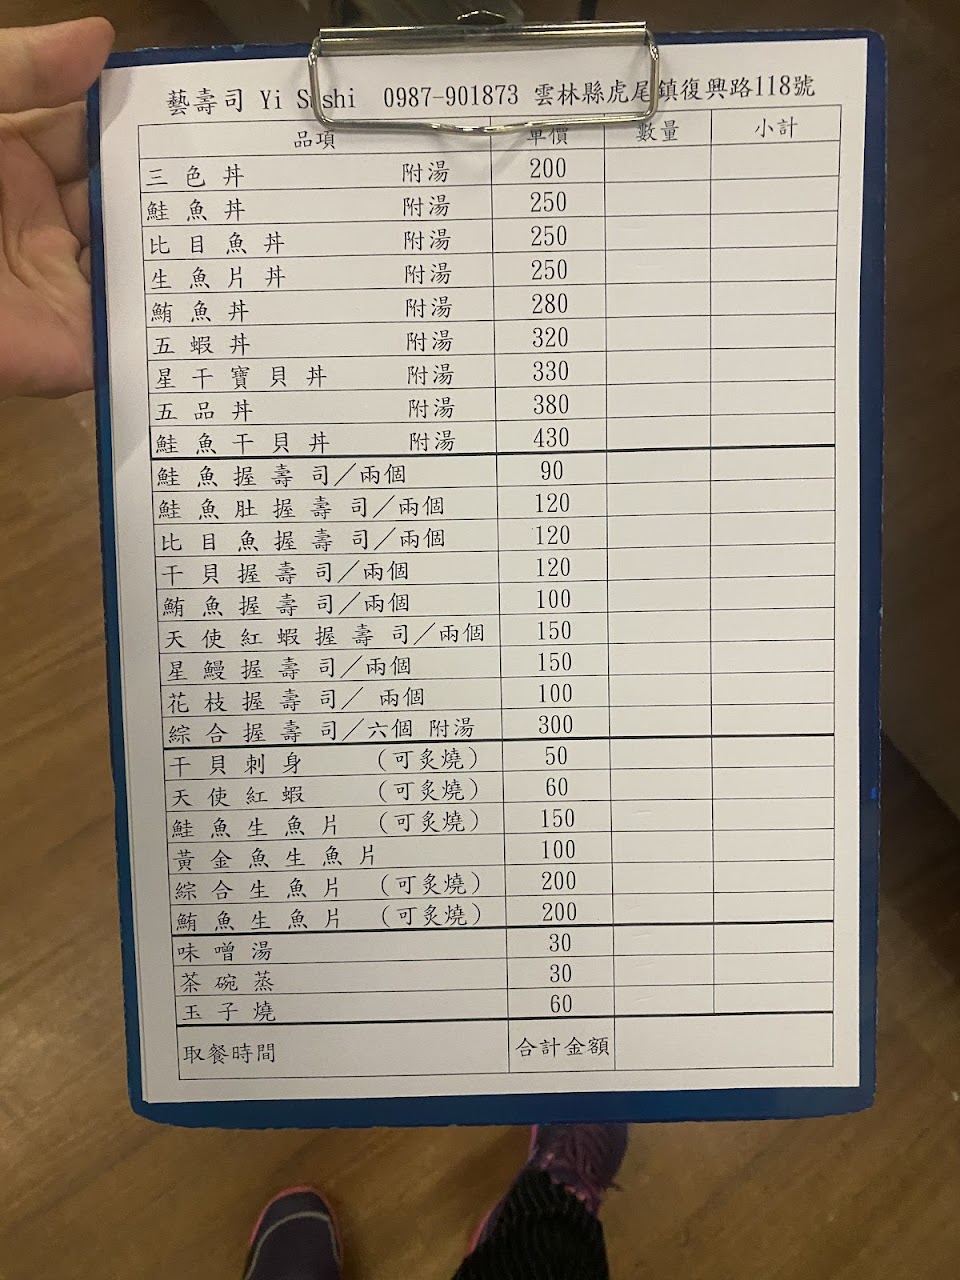 藝壽司 Yi Sushi 0987-901873 雲林縣虎尾鎮復興路118號
品項 單價 數量 小計
三色丼 附湯 200
鮭魚丼 附湯 250
比目魚丼 附湯 250
生魚片丼 附湯 250
鮪魚丼 附湯 280
五蝦丼 附湯 320
星干寶貝丼 附湯 330
五品丼 附湯 380
鮭魚干貝丼 附湯 430
鮭魚握壽司／兩個 90
鮭魚肚握壽司／兩個 120
比目魚握壽司／兩個 120
干貝握壽司／兩個 120
鮪魚握壽司／兩個 100
天使紅蝦握壽司／兩個 150
星鰻握壽司／兩個 150
花枝握壽司／ 兩個 100
綜合握壽司／六個 附湯 300
干貝刺身 （可炙燒） 50
天使紅蝦 （可炙燒） 60
鮭魚生魚片 （可炙燒） 150
黃金魚生魚片 100
綜合生魚片 （可炙燒） 200
鮪魚生魚片 （可炙燒） 200
味噌湯 30
茶碗蒸 30
玉子燒 60
取餐時間 合計金額